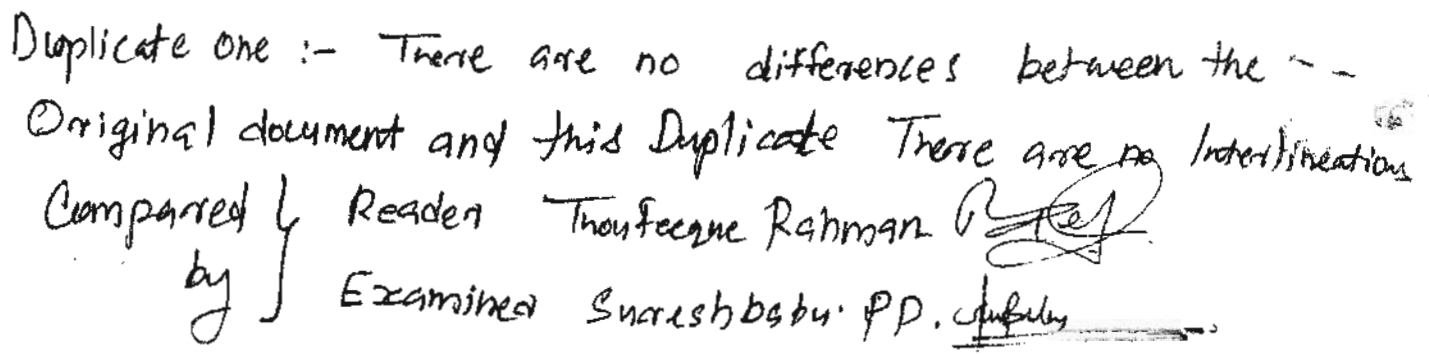 Duplicate one :- There are no differences between the - -
Original document and this Duplicate There are no Interlineations
Compared by } Reader Thoufeeque Rahman
Examiner Sureshbabu. P.D.